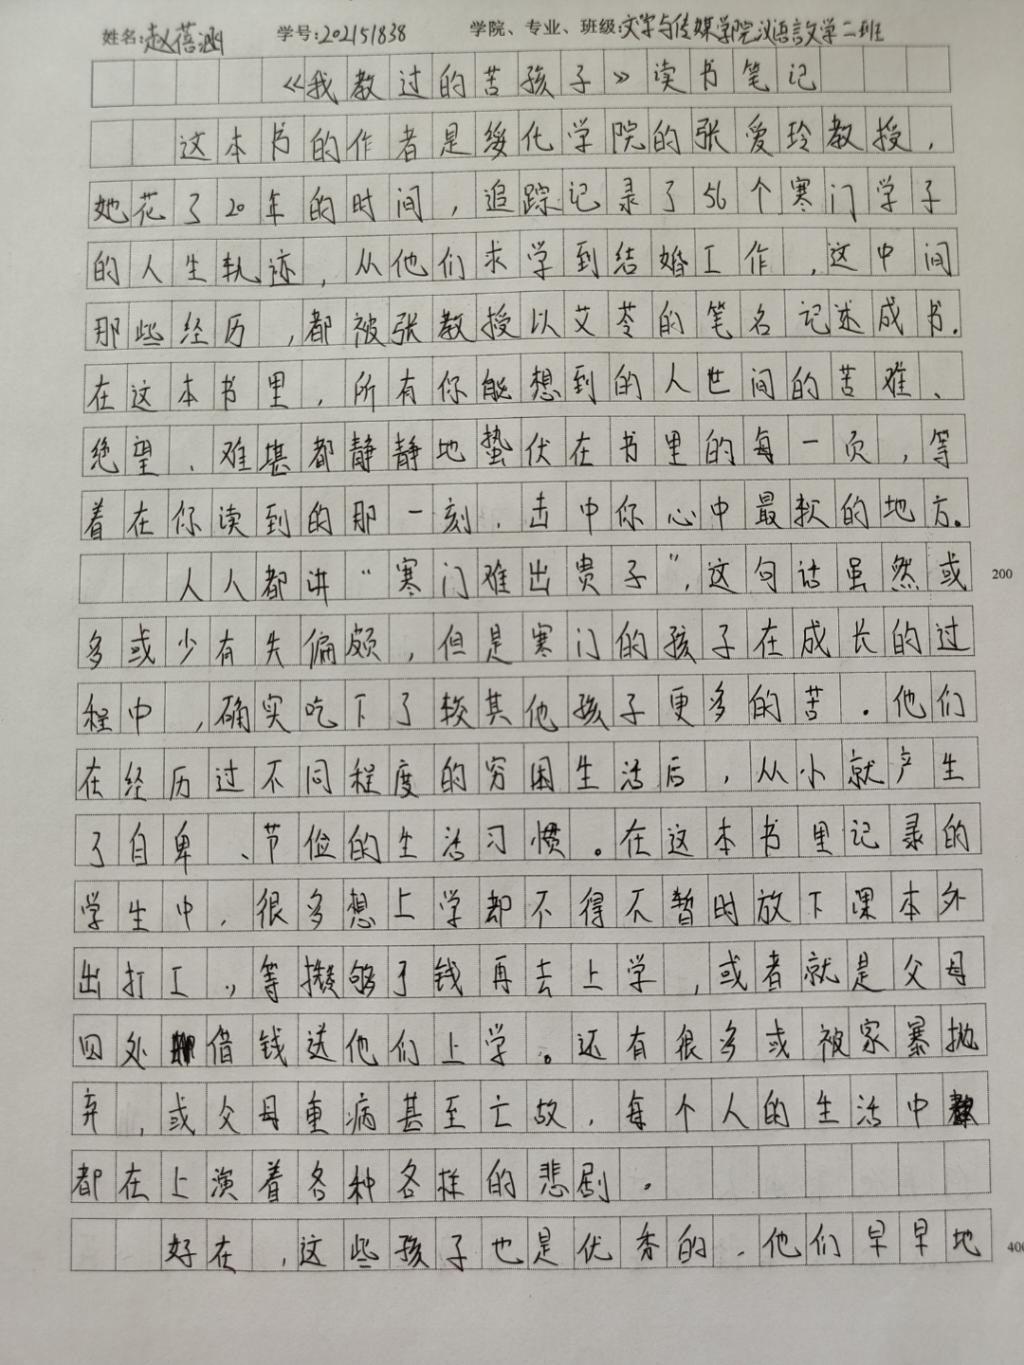 姓名:赵蓓涵 学号:202151838 学院、专业、班级:文学与传媒学院汉语言文学二班
《我教过的苦孩子》读书笔记
这本书的作者是绥化学院的张爱玲教授，
她花了20年的时间，追踪记录了56个寒门学子
的人生轨迹，从他们求学到结婚工作，这中间
那些经历，都被张教授以艾苓的笔名记述成书.
在这本书里，所有你能想到的人世间的苦难、
绝望、难堪都静静地蛰伏在书里的每一页，等
着在你读到的那一刻，击中你心中最软的地方。
人人都讲“寒门难出贵子”，这句话虽然或 200
多或少有失偏颇，但是寒门的孩子在成长的过
程中，确实吃下了较其他孩子更多的苦。他们
在经历过不同程度的穷困生活后，从小就产生
了自卑、节俭的生活习惯。在这本书里记录的
学生中，很多想上学却不得不暂时放下课本外
出打工，等攒够了钱再去上学，或者就是父母
四处借钱送他们上学。还有很多或被家暴抛
弃，或父母重病甚至亡故，每个人的生活中
都在上演着各种各样的悲剧。
好在，这些孩子也是优秀的，他们早早地 400